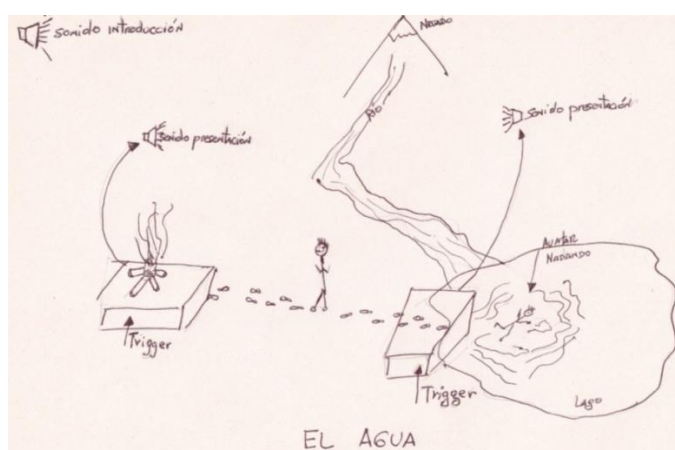 Sonido INTRODUCCIÓN
NEVADO
RÍO
Sonido presentación
Sonido presentación
AVATAR
NADANDO
Trigger
Trigger
Lago
EL AGUA